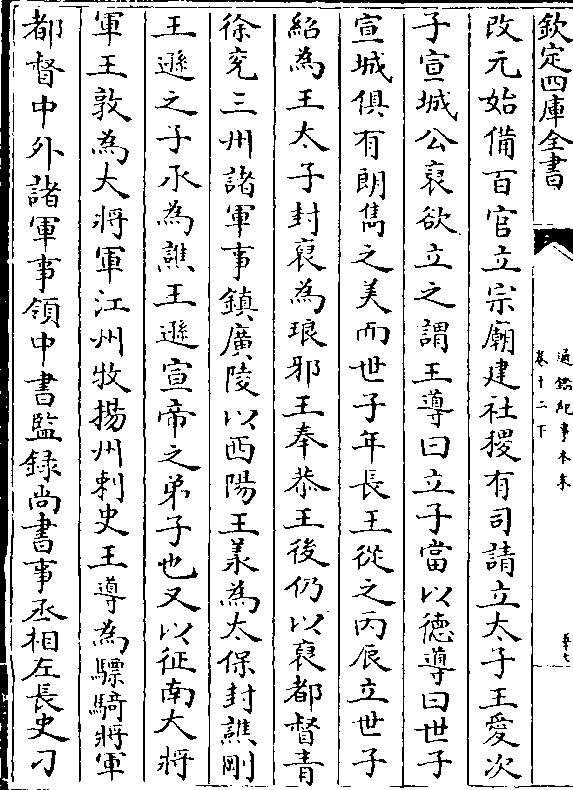 欽定四庫全書
通鑑紀事本末
卷十二下
改元始備百官立宗廟建社稷有司請立太子王愛次
子宣城公裒欲立之謂王導曰立子當以德導曰世子
宣城俱有朗雋之美而世子年長王從之丙辰立世子
紹為王太子封裒為琅邪王奉恭王後仍以裒都督青
徐兖三州諸軍事鎮廣陵以西陽王羕為太保封譙剛
王遜之子氶為譙王遜宣帝之弟子也又以征南大將
軍王敦為大將軍江州牧揚州刺史王導為驃騎將軍
都督中外諸軍事領中書監録尚書事丞相左長史刁